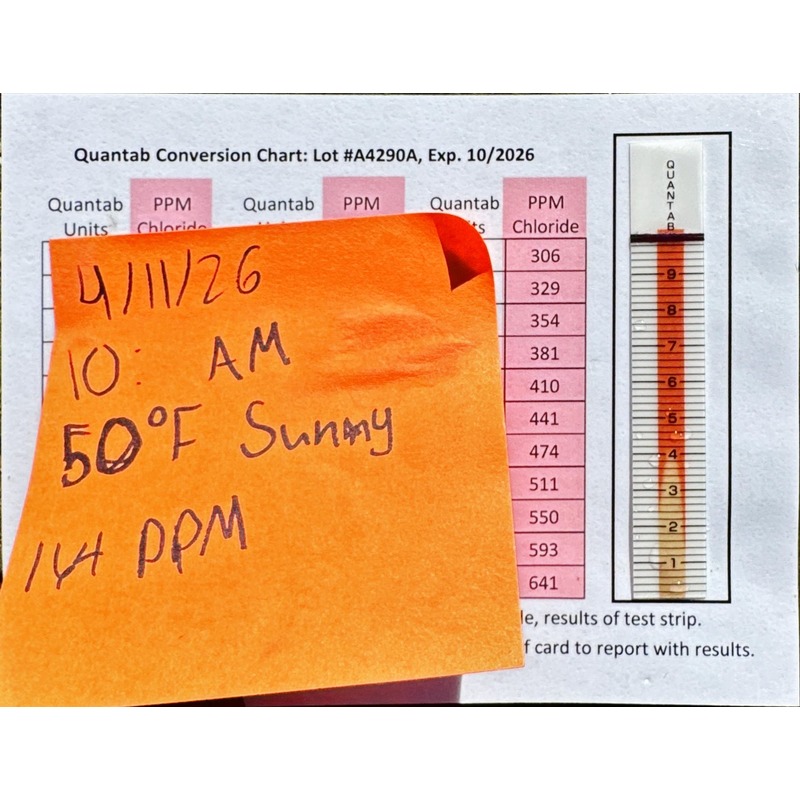 Quantab Conversion Chart: Lot #A4290A, Exp. 10/2026
Quantab PPM Quantab PPM Quantab PPM
Units Chloride Chloride
306
329
354
381
410
441
474
511
550
593
641
4/11/26
10: AM
50°F Sunny
164 PPM
QUANTAB
9
8
7
6
5
4
3
2
1
le, results of test strip.
f card to report with results.